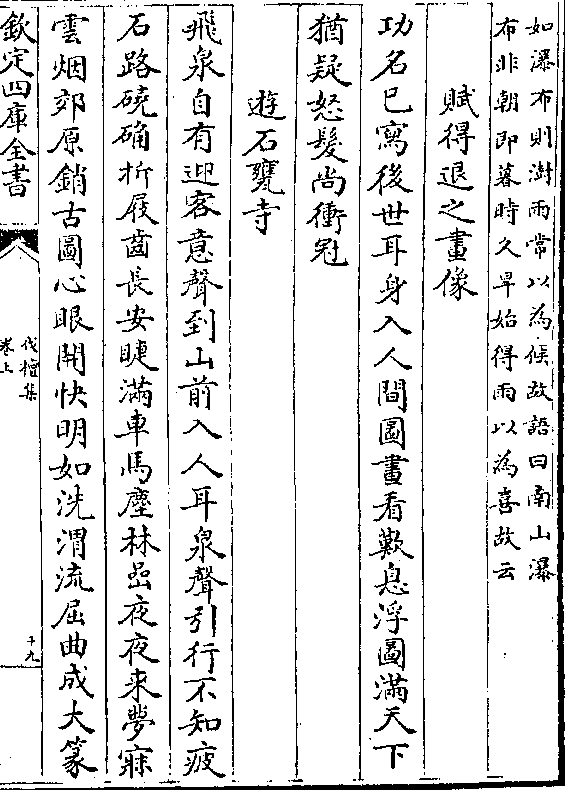 如瀑布則澍雨常以為候故語曰南山瀑
布非朝即暮時久旱始得雨以為喜故云
賦得退之畫像
功名已寓後世耳身入人間圖畫看歎息浮圖滿天下
猶疑怒髮尚衝冠
遊石甕寺
飛泉自有迎客意聲到山前入人耳泉聲引行不知疲
石路磽确折屐齒長安睫滿車馬塵林嵒夜夜来夢寐
雲烟郊原銷古圖心眼開快明如洗渭流屈曲成大篆
欽定四庫全書
伐檀集
卷上
十九